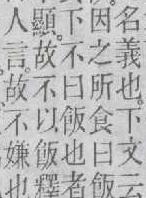 名義也。下文云
因之所食曰飯
下不曰飯也者
顯。故不以飯釋
人言。故不嫌也